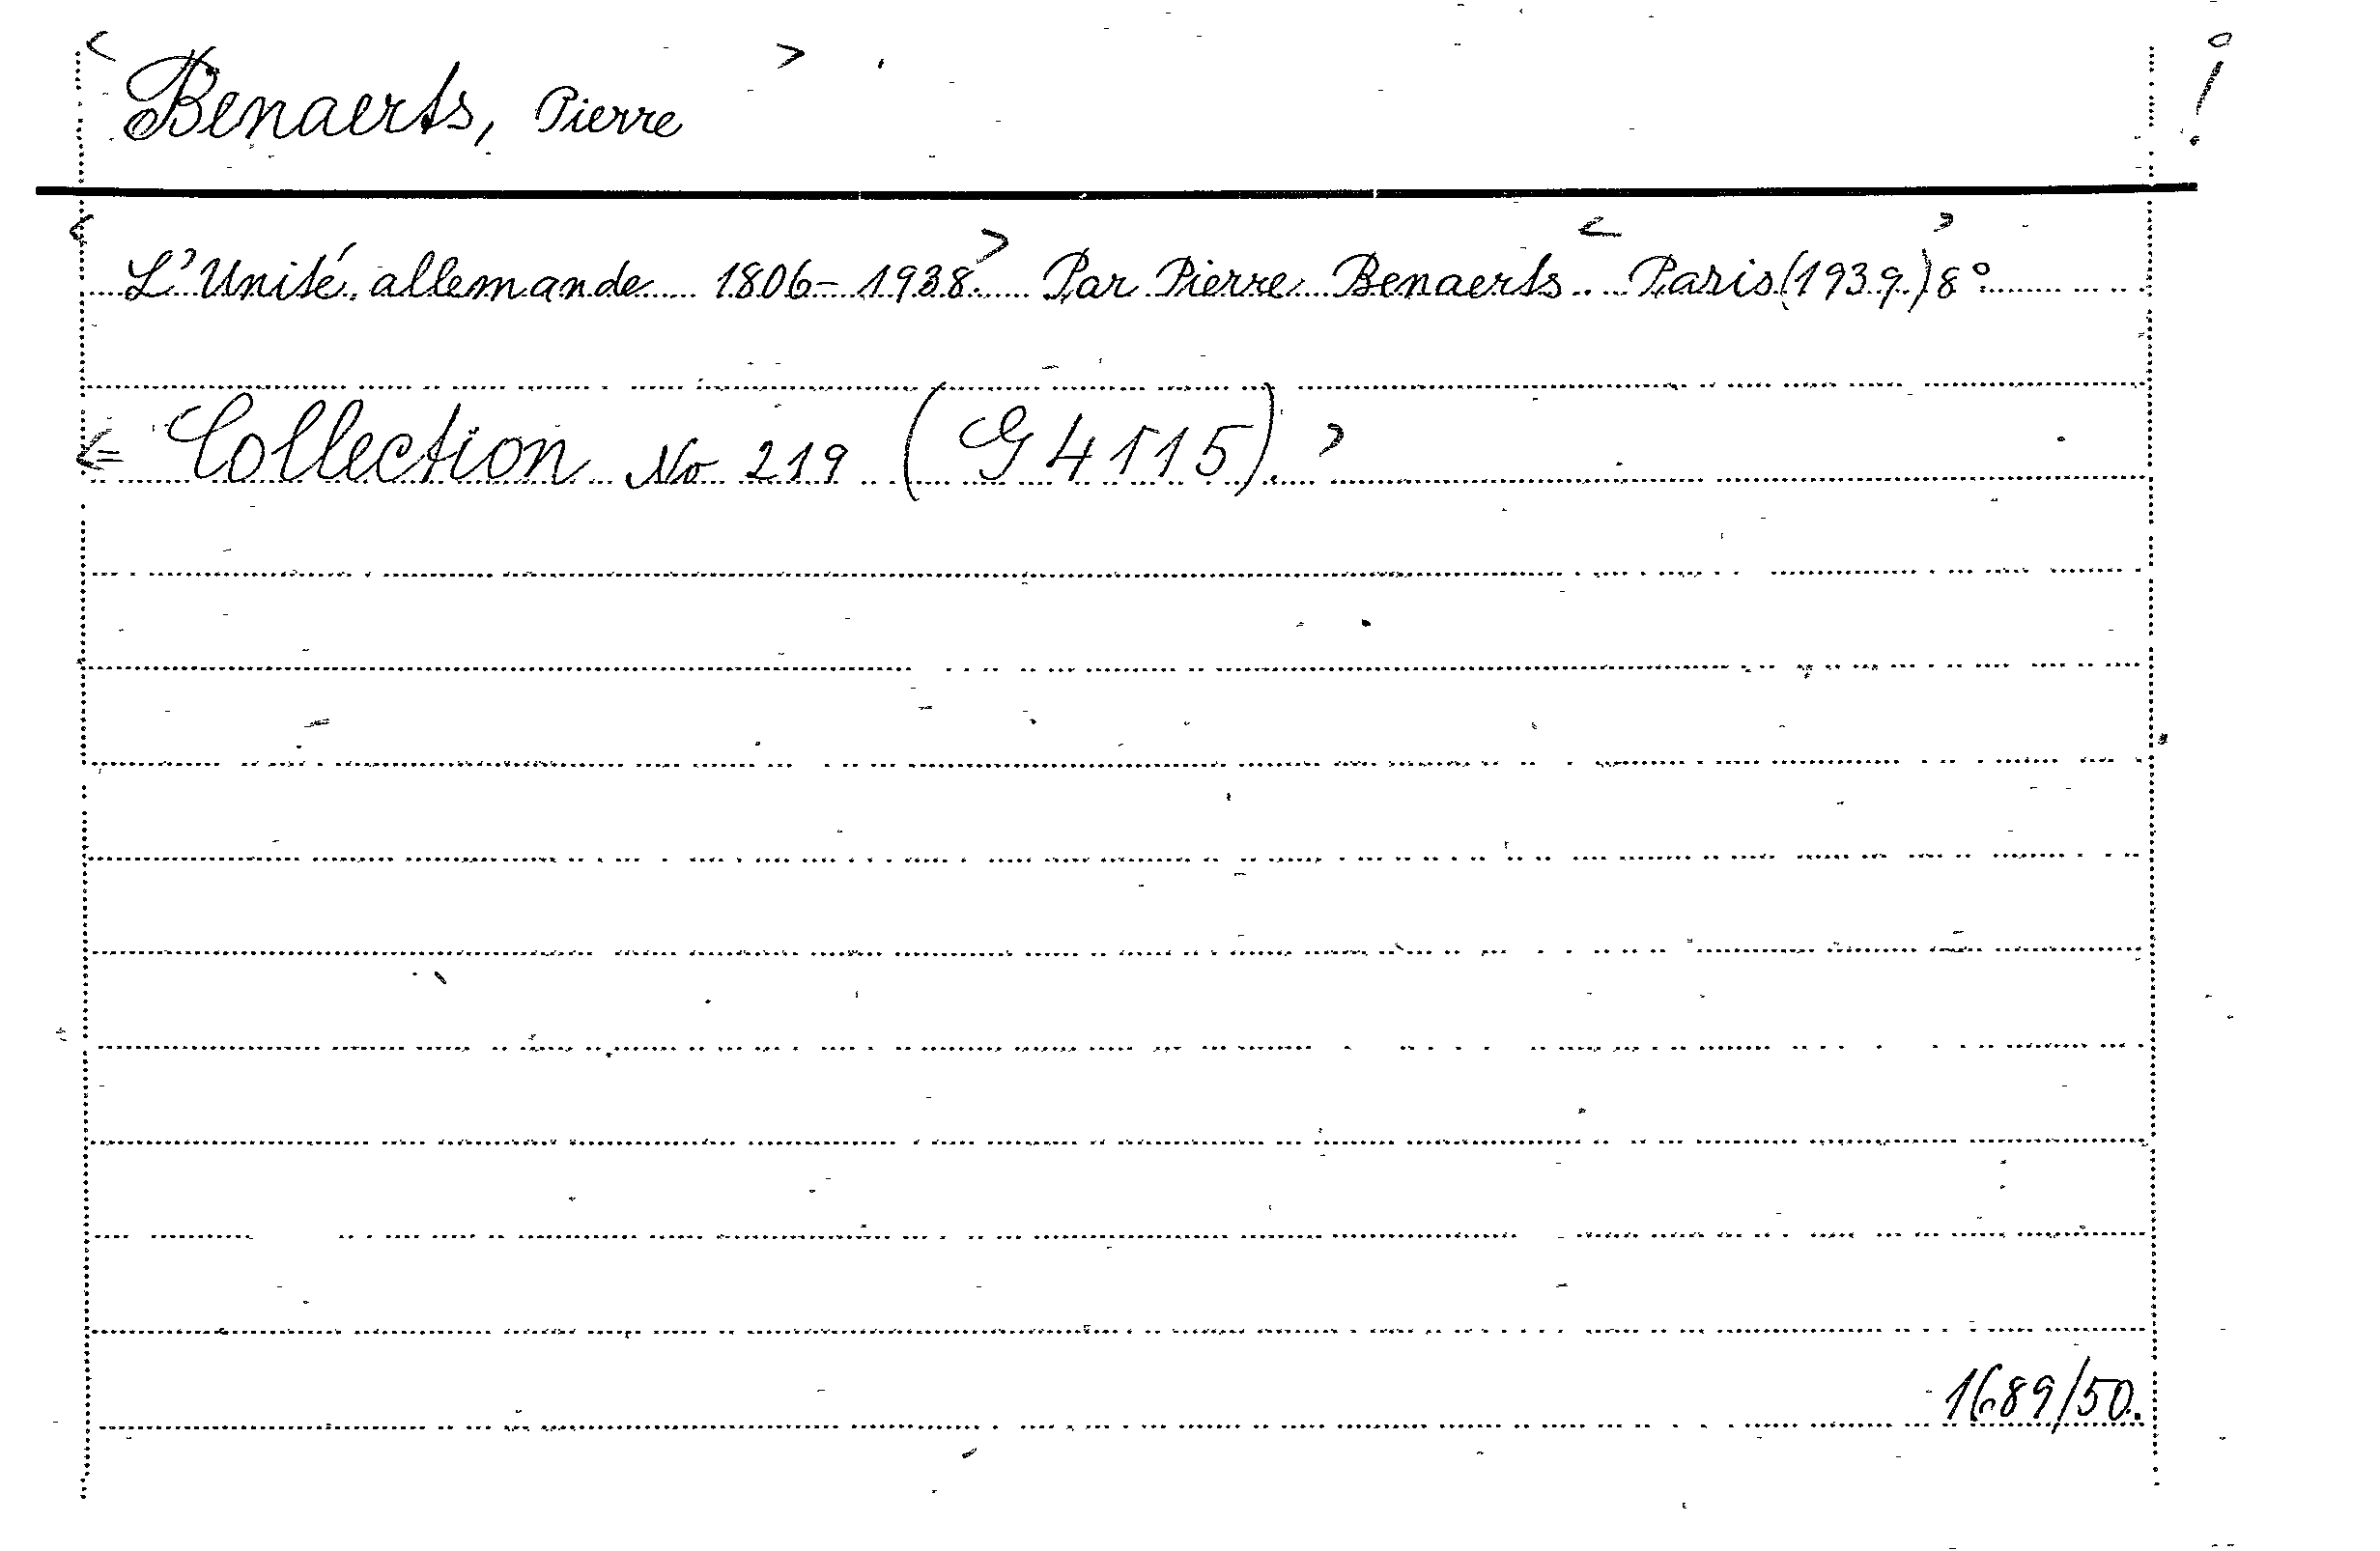 Benaerts, Pierre
L'Unité allemande 1806-1938. Par Pierre Benaerts. Paris (1939.) 8°.
= Collection No 219 (G 4115).
1689/50.